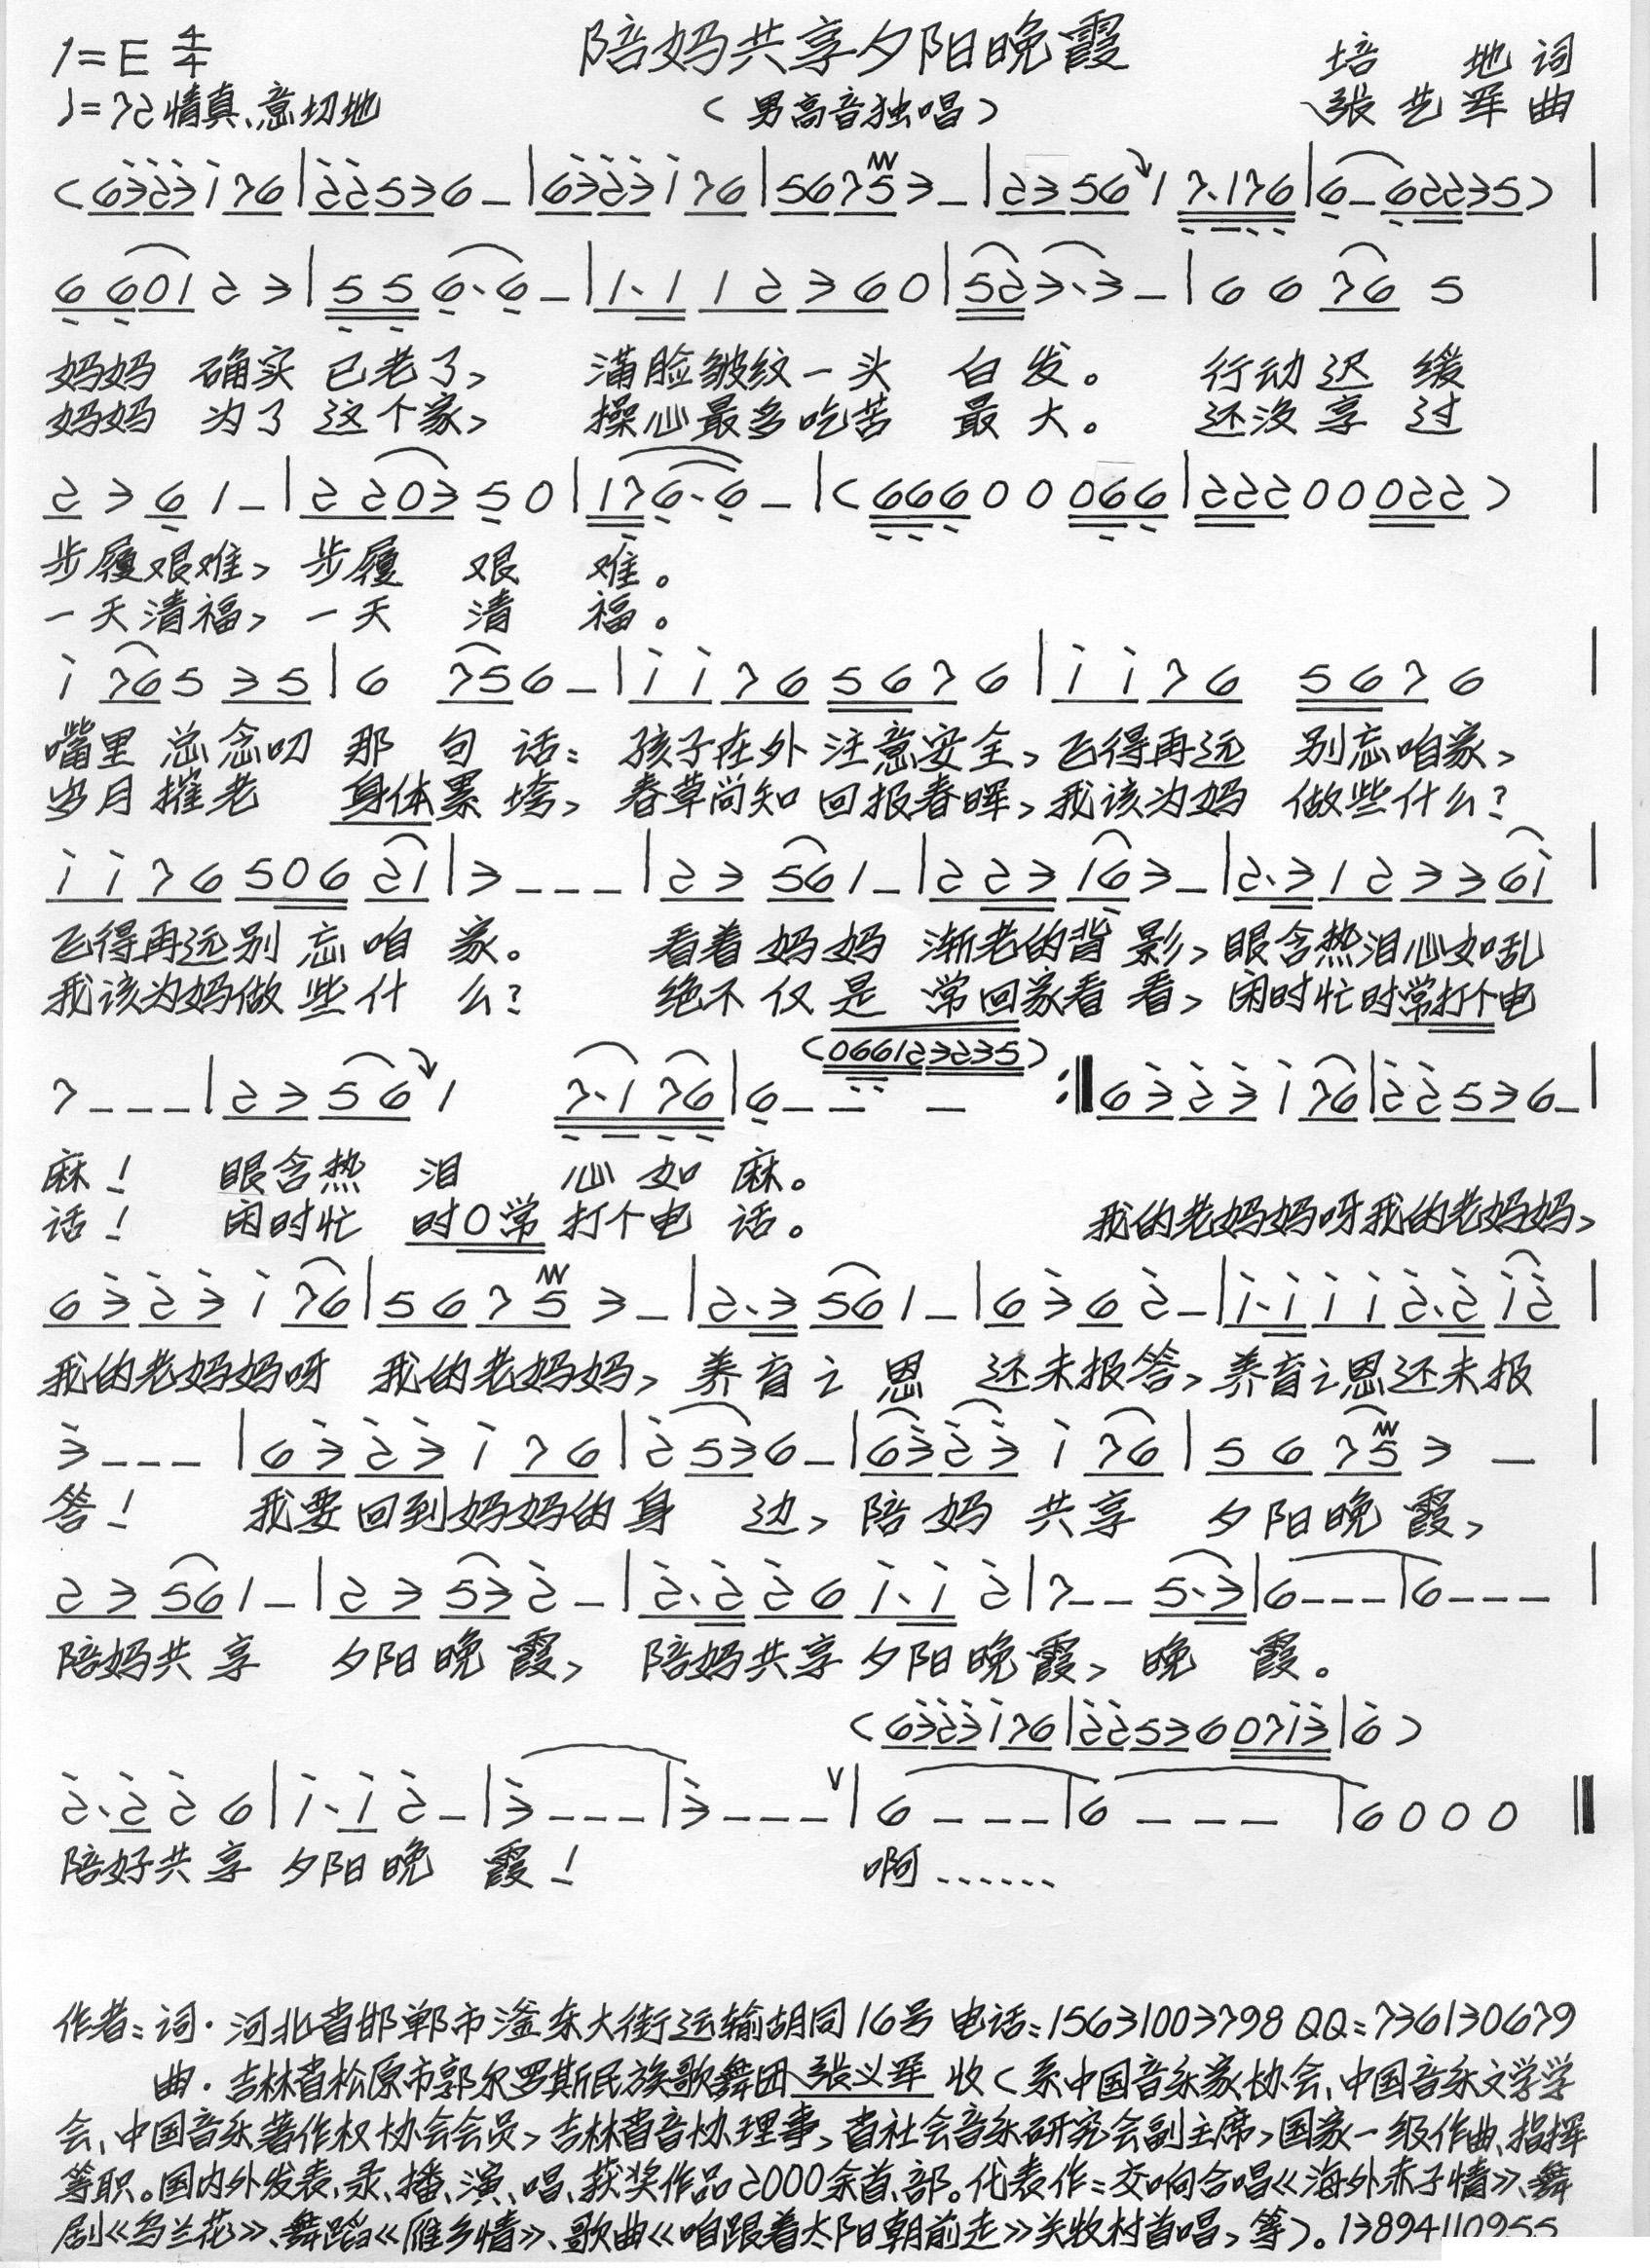 陪妈共享夕阳晚霞
1=E 4/4
培 地 词
♩=72 情真、意切地
(男高音独唱)
张艺军 曲
(6323176|22536-|6323176|56753-|23561 7.176|6-62235)|
660123|556.6-|1.112360|523.3-|66765|
妈妈 确实 已老了, 满脸皱纹一头 白发。 行动迟 缓
妈妈 为了 这个家, 操心最多吃苦 最大。 还没享 过
2361-|220350|176.6-|(66600066|22200022)|
步履艰难, 步履 艰 难。
一天清福, 一天 清 福。
i76535|6756-|ii765676|ii765676|
嘴里 总念叨 那 句 话: 孩子在外 注意安全, 飞得再远 别忘咱家,
岁月摧老 身体累 垮, 春草尚知 回报春晖, 我该为妈 做些什么?
ii7650621|3---|23561-|223163-|2.3123361|
飞得再远别 忘咱 家。 看着妈妈 渐老的背 影, 眼含热泪心如乱
我该为妈做 些什 么? 绝不仅是 常回家看 看, 闲时忙时常打个电
(066123235)
7---|23561 7.176|6---:‖6323176|22536-|
麻! 眼含热 泪 心如 麻。
话! 闲时忙 时0常 打个电 话。 我的老妈妈呀我的老妈妈,
6323176|56753-|2.3561-|6362-|1.1112.212|
我的老妈妈呀 我的老妈妈, 养育之 恩 还未报答, 养育之恩还未报
3---|6323176|2536-|6323176|56753-|
答! 我要回到妈妈的身 边, 陪妈 共享 夕阳晚 霞,
23561-|23532-|2.2261.12|7--5.3|6---|6---|
陪妈共享 夕阳晚霞, 陪妈共享夕阳晚霞, 晚 霞。
(6323176|225360713|6)
2.226|1.12-|3---|3---∨|6---|6---|6000‖
陪好共享 夕阳晚 霞! 啊……
作者:词·河北省邯郸市滏东大街运输胡同16号 电话:15631003798 QQ:736130679
曲·吉林省松原市郭尔罗斯民族歌舞团 张义军 收(系中国音乐家协会、中国音乐文学学
会、中国音乐著作权协会会员,吉林省音协理事,省社会音乐研究会副主席,国家一级作曲、指挥
等职。国内外发表、录、播、演、唱、获奖作品2000余首、部。代表作:交响合唱《海外赤子情》、舞
剧《乌兰花》、舞蹈《雁乡情》、歌曲《咱跟着太阳朝前走》关牧村首唱,等)。13894110955